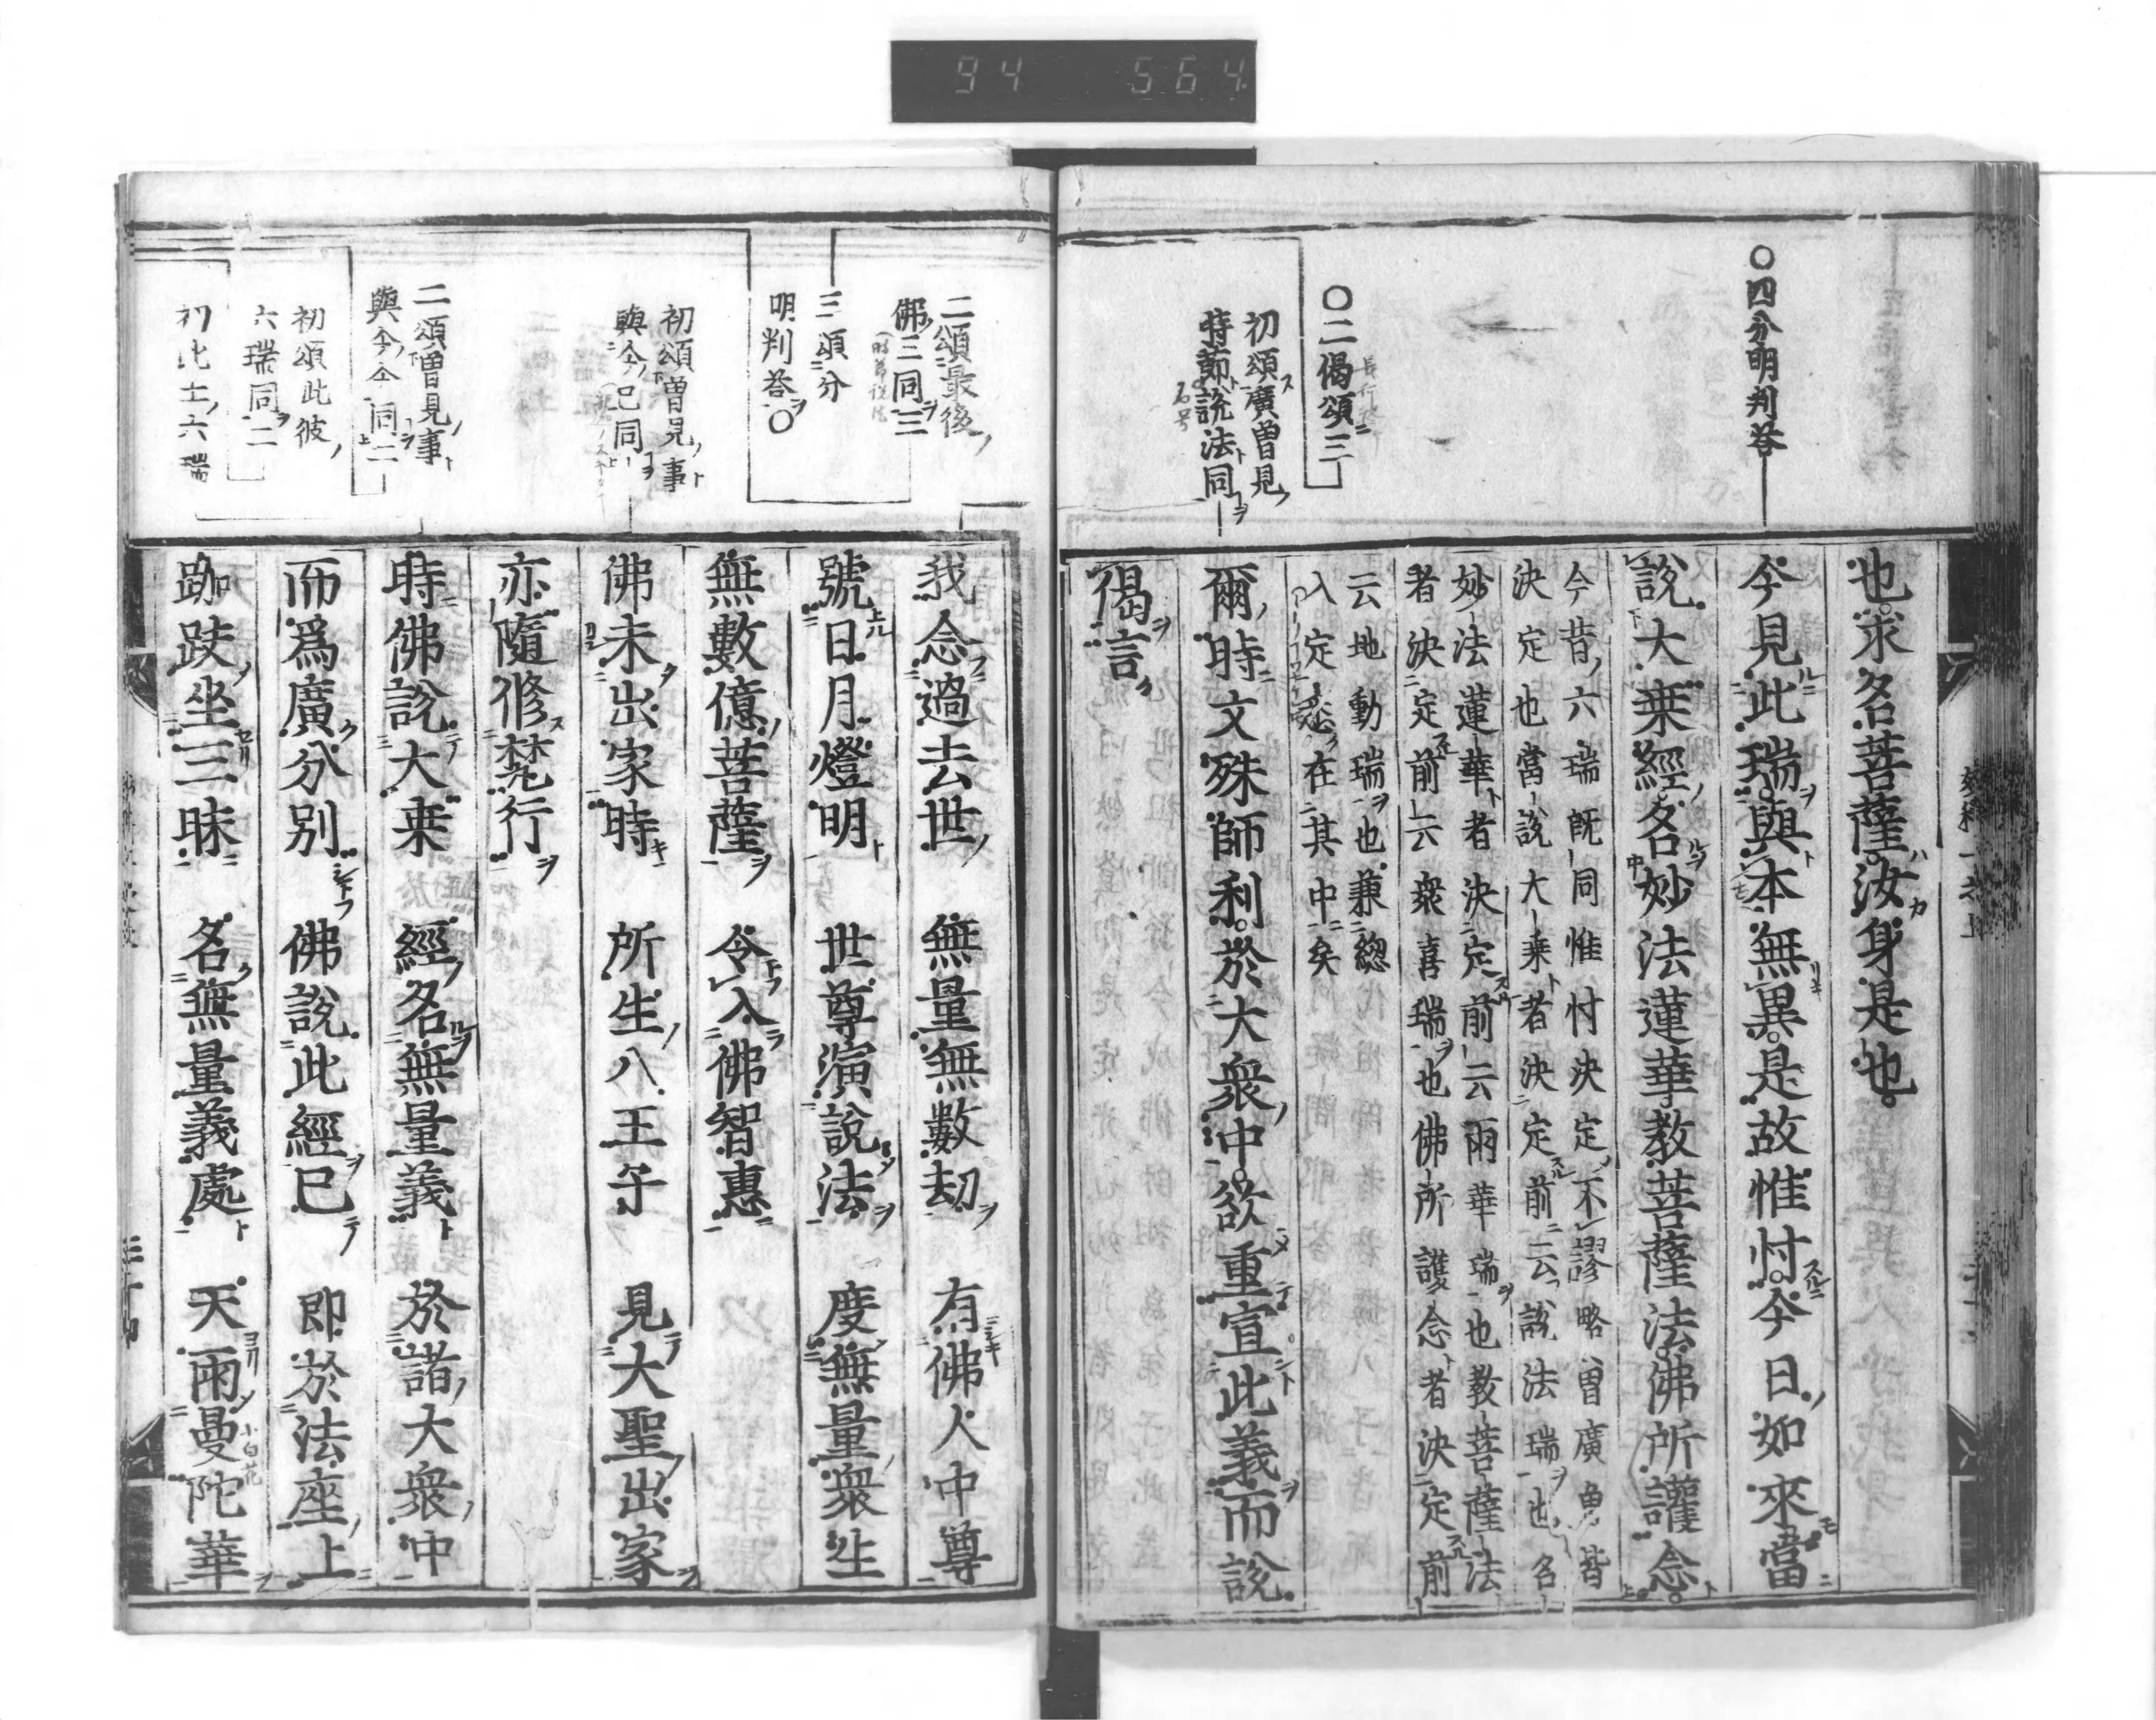 94 564
○四分明判荅
○二偈頌三
初頌廣曽見
時節說法同
也求名菩薩汝身是也
今見此瑞與本無異是故惟忖今日如來當
說大乗經名妙法蓮華教菩薩法佛所護念
今昔六瑞既同惟忖決定不謬略曽廣皃皆
決定也當說大乗者決定前云說法瑞也名
妙法蓮華者決定前云雨華瑞也教菩薩法
者決定前云衆喜瑞也佛所護念者決定前
云地動瑞也兼緫
入定在其中矣
爾時文殊師利於大衆中欲重宣此義而說
偈言
二頌最後
佛三同三
三頌分
明判荅○
初頌曽見事
與今已同
二頌曽見事
與今今同二
初頌此彼
六瑞同二
初此土六瑞
我念過去世 無量無數劫 有佛人中尊
號日月燈明 世尊演說法 度無量衆生
無數億菩薩 令入佛智惠
佛未出家時 所生八王子 見大聖出家
亦隨修梵行
時佛說大乗 經名無量義 於諸大衆中
而爲廣分別 佛說此經已 即於法座上
跏趺坐三昧 名無量義處 天雨曼陀華